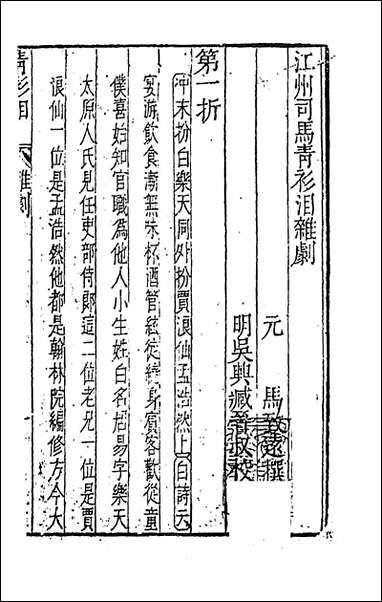 江州司馬青衫泪雜劇
元 馬致遠撰
明吳興臧晉叔校
第一折
冲末扮白樂天同外扮賈浪仙孟浩然上白詩云
宴游飲食漸無味杯酒管絃徒繞身賓客歡從童
僕喜始知官職為他人小生姓白名居易字樂天
太原人氏見任吏部侍郎這二位老兄一位是賈
浪仙一位是孟浩然他都是翰林院編修方今大
青衫泪 雜劇